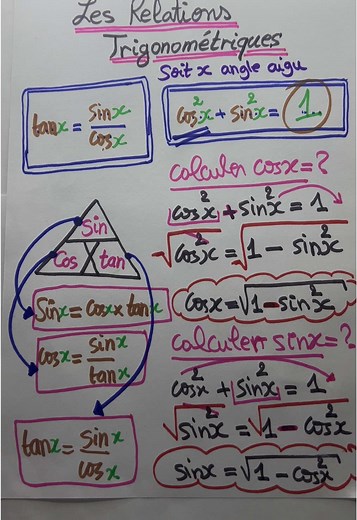 Les Relations
Trigonométriques
Soit x angle aigu
tanx = sinx/cosx
cos²x + sin²x = 1
calculer cosx = ?
cos²x + sin²x = 1
√cos²x = √1 - sin²x
cosx = √1 - sin²x
Sin
Cos tan
Sinx = cosx x tanx
cosx = sinx/tanx
tanx = sinx/cosx
calculer sinx = ?
cos²x + sin²x = 1
√sin²x = √1 - cos²x
sinx = √1 - cos²x